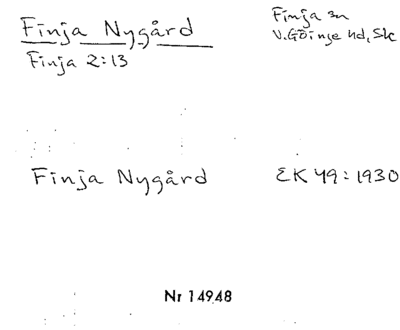 Finja Nygård
Finja 2:13
Finja sn
V.Göinge hd, Sk
Finja Nygård
EK 49:1930
Nr 14948